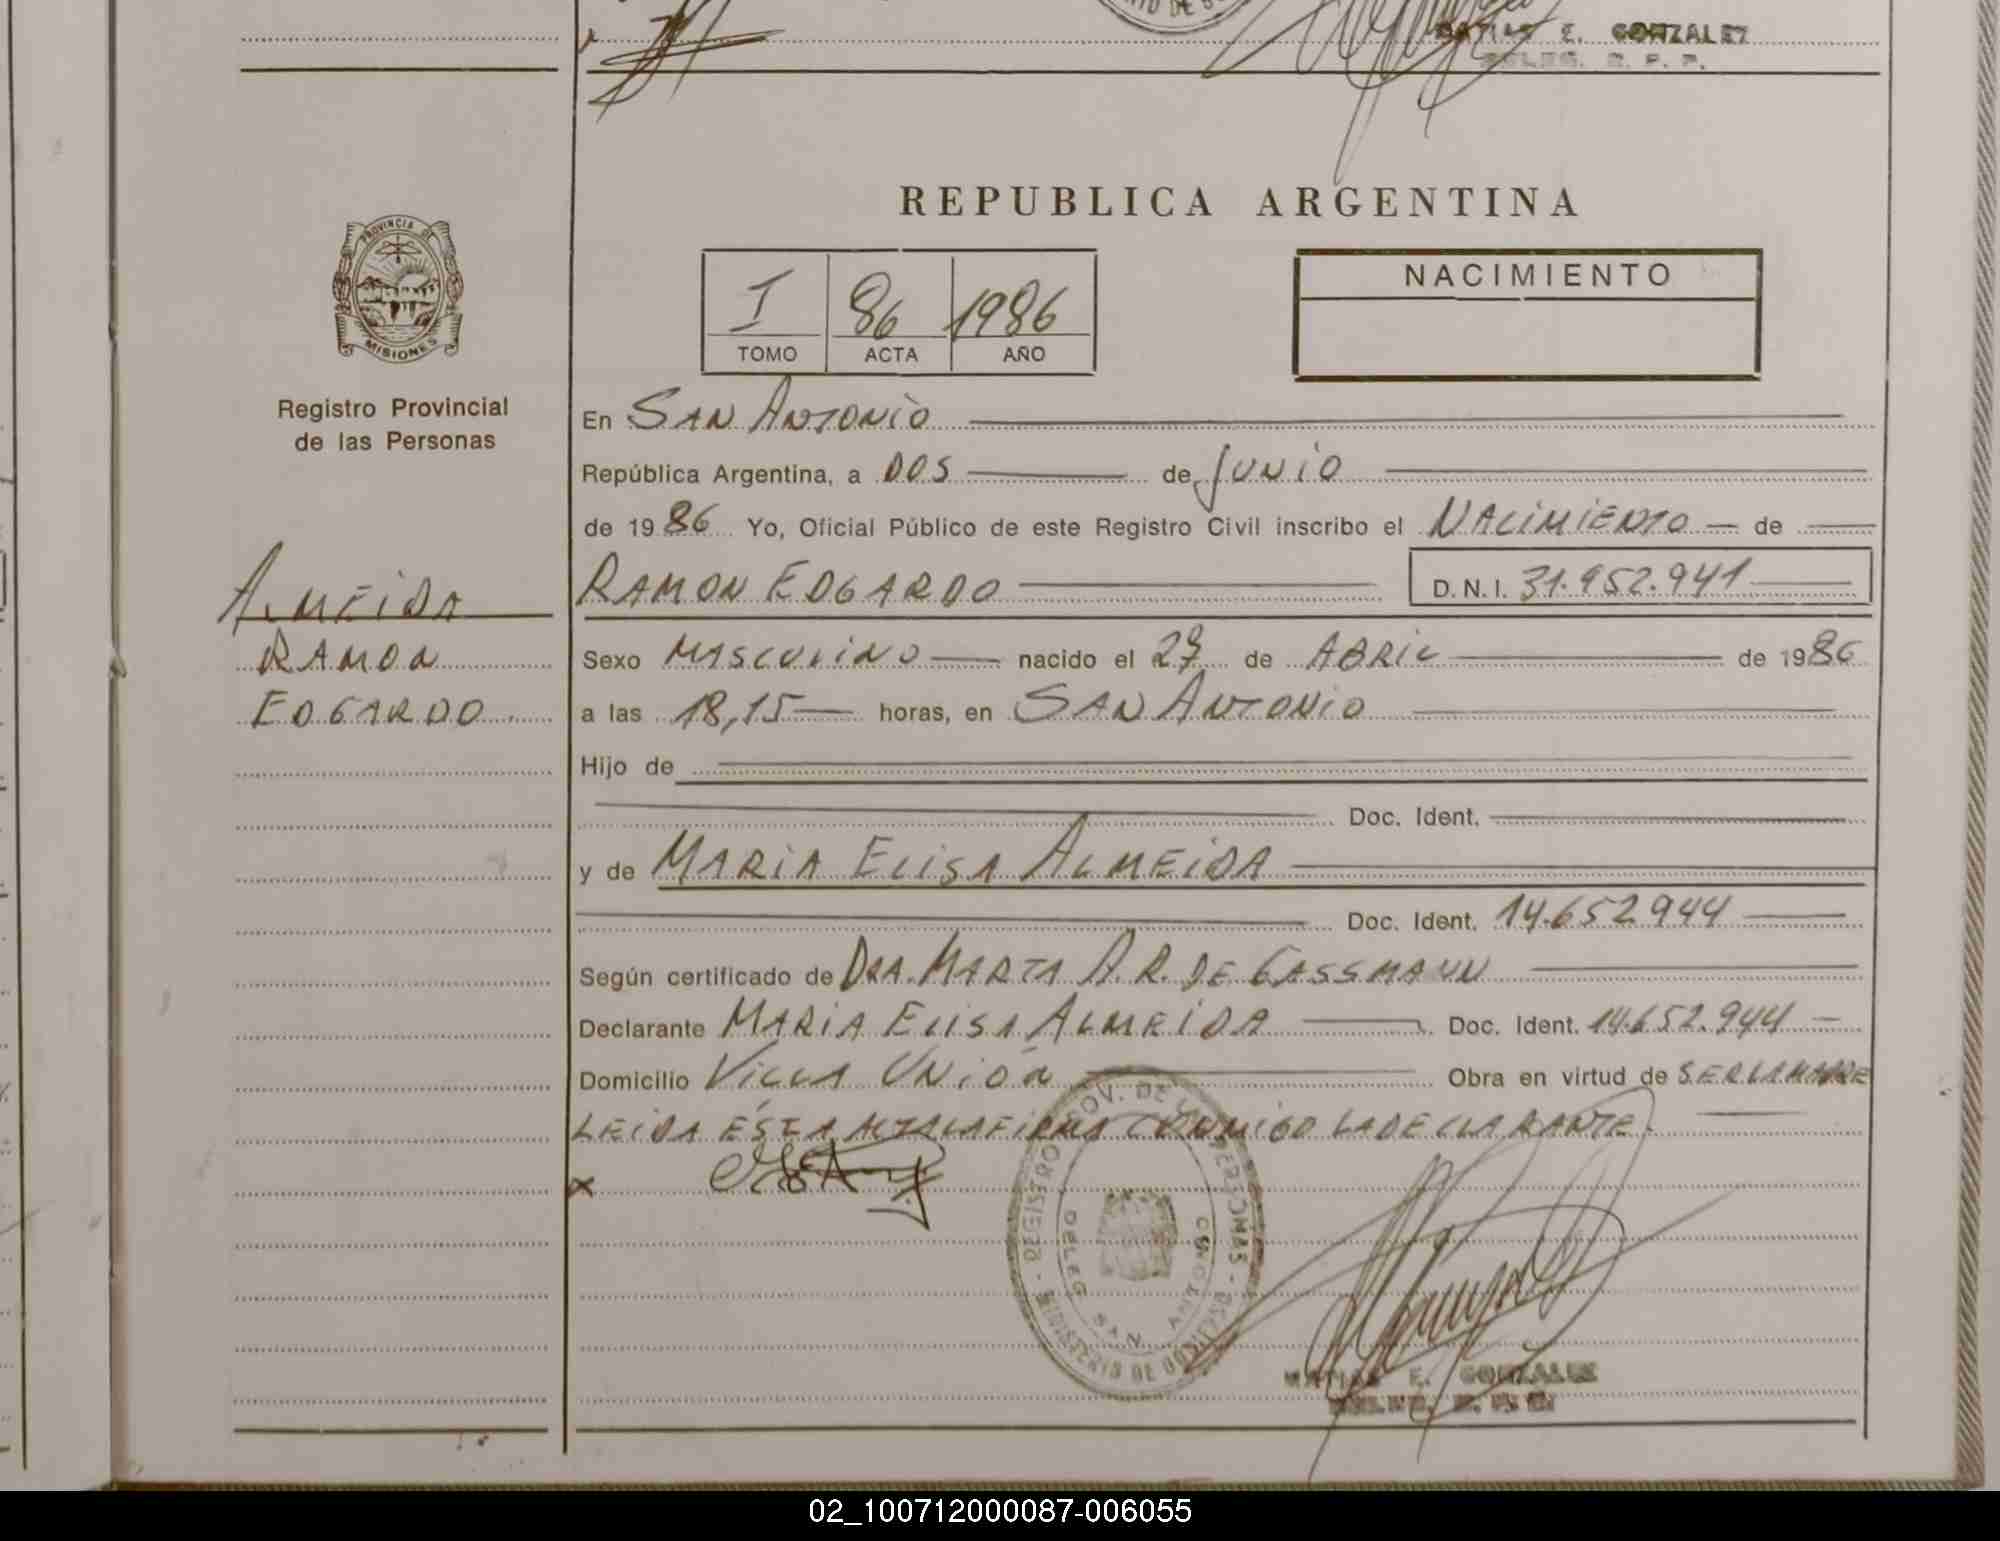 MATIAS E. GONZALEZ
DELEG. R. P. P.
PROVINCIA DE
MISIONES
Registro Provincial
de las Personas
REPUBLICA ARGENTINA
I 86 1986
TOMO ACTA AÑO
NACIMIENTO
En SAN ANTONIO
República Argentina, a DOS de JUNIO
de 1986 Yo, Oficial Público de este Registro Civil inscribo el NACIMIENTO de
ALMEIDA
RAMON
EDGARDO
RAMON EDGARDO D.N.I. 31.952.941
Sexo MASCULINO nacido el de ABRIL de 1986
a las 18,15 horas, en SAN ANTONIO
Hijo de
Doc. Ident.
y de MARIA ELISA ALMEIDA
Doc. Ident. 14.652.944
Según certificado de DRA. MARTA A.R. DE GASSMANN
Declarante MARIA ELISA ALMEIDA Doc. Ident. 14.652.944
Domicilio VILLA UNIÓN Obra en virtud de SER LA MADRE
LEIDA ÉSTA ACTA LA FIRMA CONMIGO LA DECLARANTE.
x
REGISTRO PROV. DE LAS PERSONAS - MINISTERIO DE GOBIERNO -
DELEG. SAN ANTONIO
MATIAS E. GONZALEZ
DELEG. R. P. P.
02_100712000087-006055